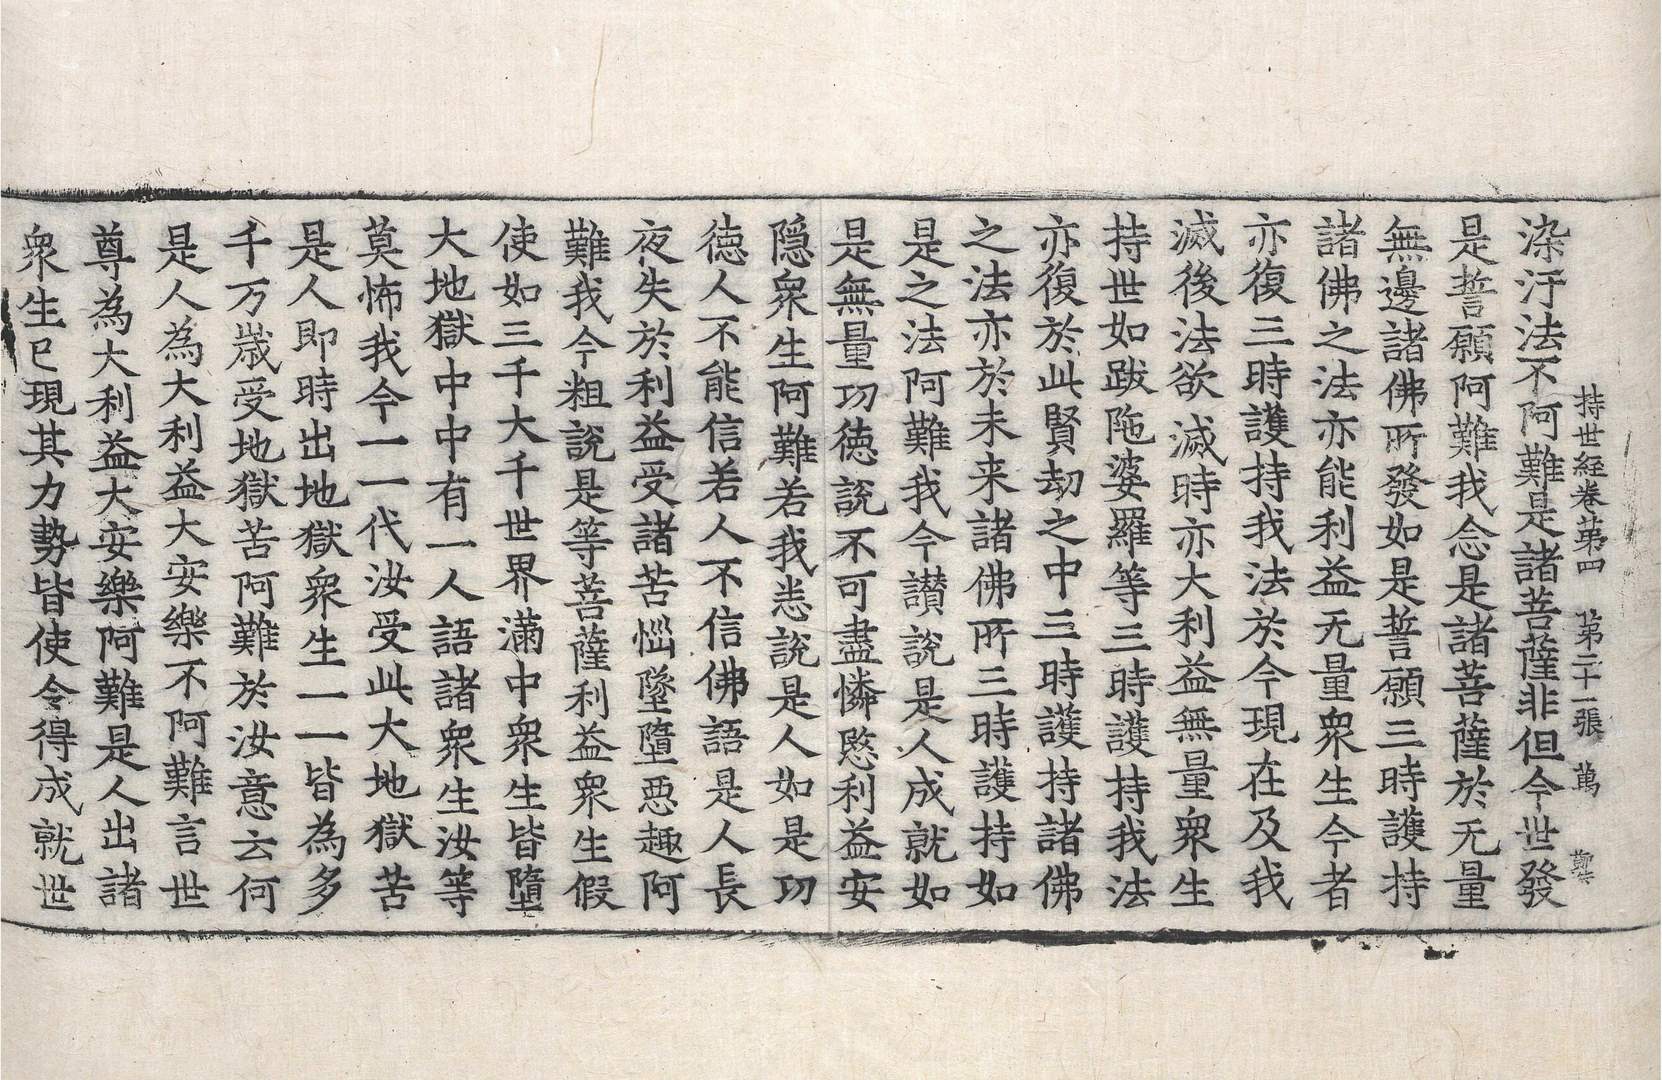 持世經卷第四 第二十一張 萬
染汙法不阿難是諸菩薩非但今世發
是誓願阿難我念是諸菩薩於无量
無邊諸佛所發如是誓願三時護持
諸佛之法亦能利益无量衆生今者
亦復三時護持我法於今現在及我
滅後法欲滅時亦大利益無量衆生
持世如跋陁婆羅等三時護持我法
亦復於此賢劫之中三時護持諸佛
之法亦於未来諸佛所三時護持如
是之法阿難我今讃說是人成就如
是無量功徳說不可盡憐愍利益安
隠衆生阿難若我悉說是人如是功
徳人不能信若人不信佛語是人長
夜失於利益受諸苦惱墜墮惡趣阿
難我今粗說是等菩薩利益衆生假
使如三千大千世界滿中衆生皆墮
大地獄中中有一人語諸衆生汝等
莫怖我今一一代汝受此大地獄苦
是人即時出地獄衆生一一皆為多
千万歳受地獄苦阿難於汝意云何
是人為大利益大安樂不阿難言世
尊為大利益大安樂阿難是人出諸
衆生已現其力勢皆使令得成就世